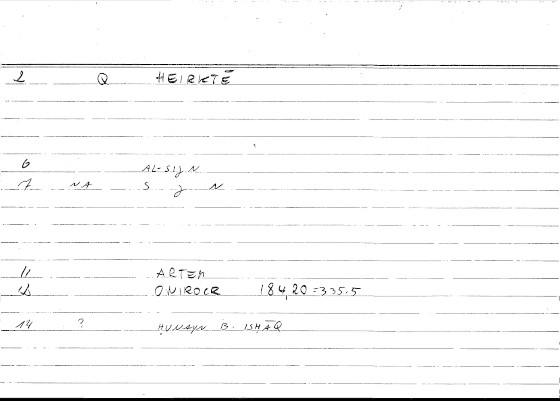 2 Q HEIRKTĒ
6 AL-SIJN
7 NA S J N
11 ARTEM
12 ONIROCR 184,20=335.5
14 ? ḤUNAYN B. ISḤĀQ